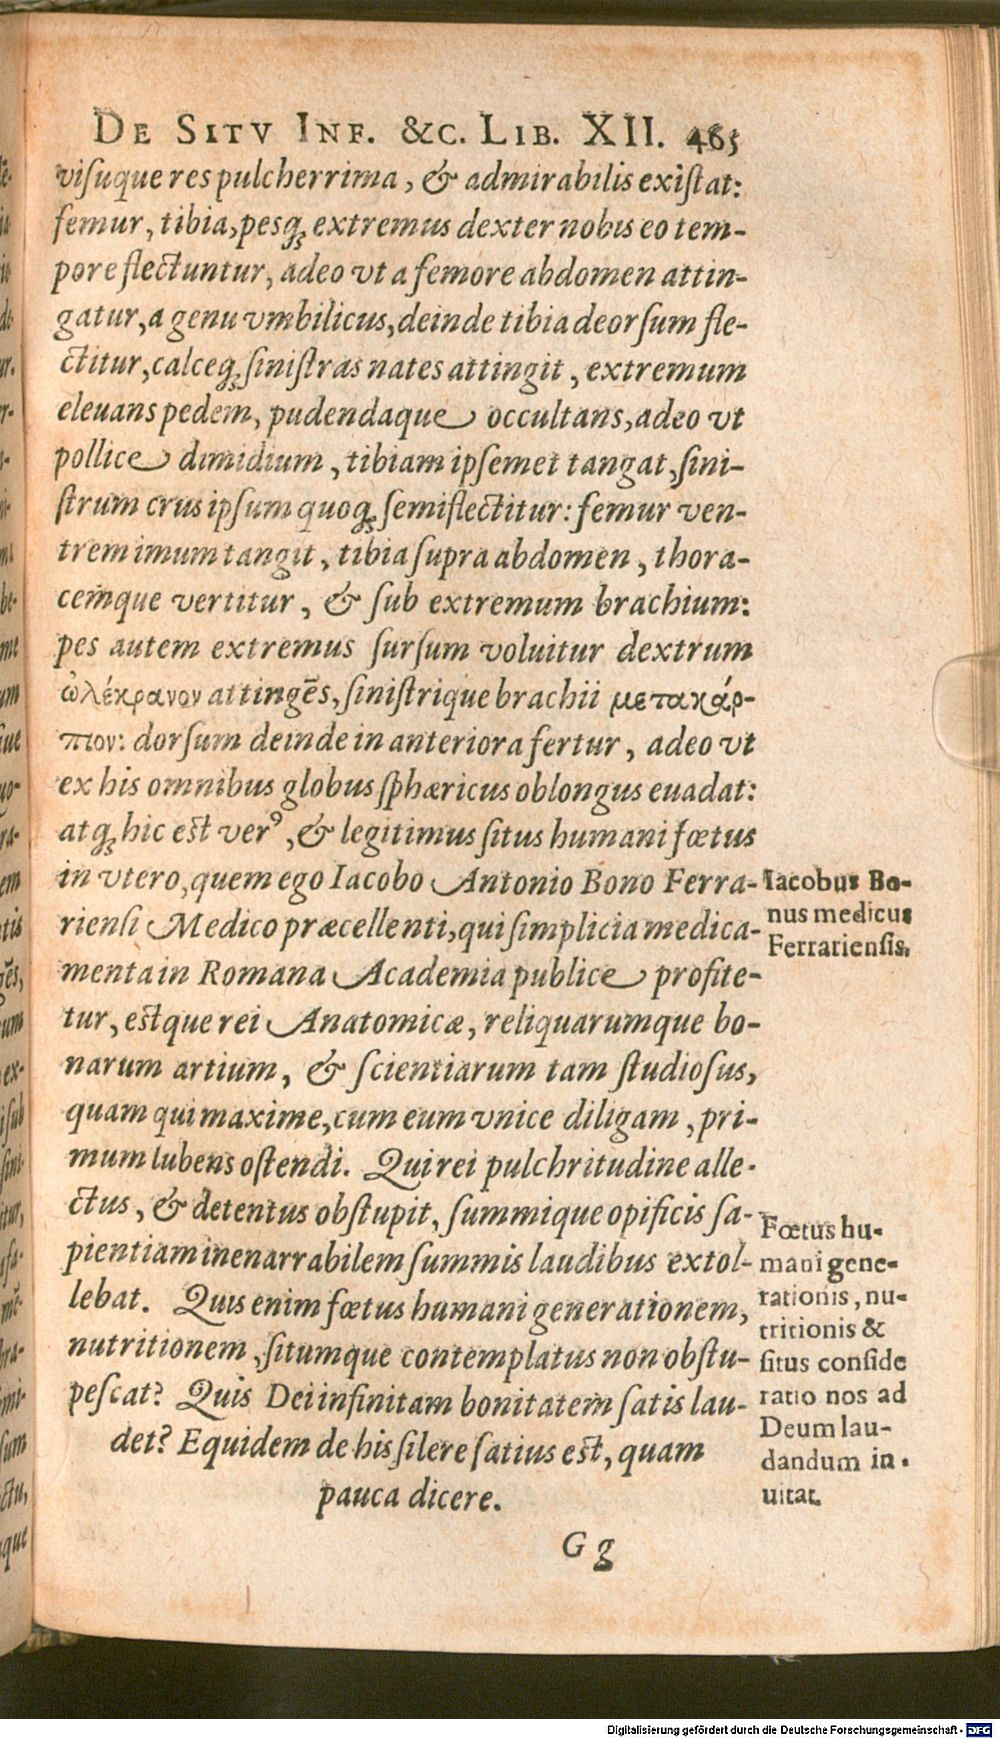 DE SITV INF. &C. LIB. XII. 465
visuque res pulcherrima, & admirabilis existat:
femur, tibia, pesq́; extremus dexter nobis eo tem-
pore flectuntur, adeo vt a femore abdomen attin-
gatur, a genu vmbilicus, deinde tibia deorsum fle-
ctitur, calceq́; sinistras nates attingit, extremum
eleuans pedem, pudendaque occultans, adeo vt
pollice dimidium, tibiam ipsemet tangat, sini-
strum crus ipsum quoq́; semiflectitur: femur ven-
trem imum tangit, tibia supra abdomen, thora-
cemque vertitur, & sub extremum brachium:
pes autem extremus sursum voluitur dextrum
ὠλέκρανον attingēs, sinistrique brachii μετακάρ-
πιον: dorsum deinde in anteriora fertur, adeo vt
ex his omnibus globus sphæricus oblongus euadat:
atq́; hic est verꝰ, & legitimus situs humani fœtus
in vtero, quem ego Iacobo Antonio Bono Ferra-
riensi Medico præcellenti, qui simplicia medica-
menta in Romana Academia publice profite-
tur, estque rei Anatomicæ, reliquarumque bo-
narum artium, & scientiarum tam studiosus,
quam qui maxime, cum eum vnice diligam, pri-
mum lubens ostendi. Qui rei pulchritudine alle-
ctus, & detentus obstupit, summique opificis sa-
pientiam inenarrabilem summis laudibus extol-
lebat. Quis enim fœtus humani generationem,
nutritionem, situmque contemplatus non obstu-
pescat? Quis Dei infinitam bonitatem satis lau-
det? Equidem de his silere satius est, quam
pauca dicere.
G g
Iacobus Bo-
nus medicus
Ferrariensis.
Fœtus hu-
mani gene-
rationis, nu-
tritionis &
situs conside
ratio nos ad
Deum lau-
dandum in-
uitat.
Digitalisierung gefördert durch die Deutsche Forschungsgemeinschaft - DFG